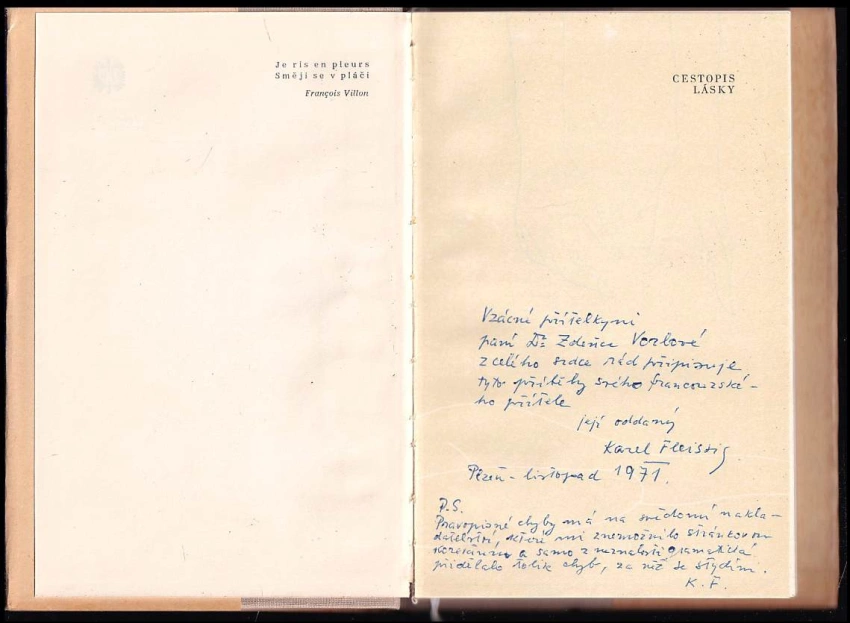 Je ris en pleurs
Směji se v pláči
François Villon
CESTOPIS
LÁSKY
Vzácné přítelkyni
paní Dr Zdeňce Vorlové
z celého srdce rád připisuje
tyto příběhy svého francouzské-
ho přítele
její oddaný
Karel Fleissig
Plzeň - listopad 1971.
P.S.
Pravopisné chyby má na svědomí nakla-
datelství, které mi znemožnilo stránkovou
korekturu a samo z neznalosti gramatiky
přidělalo tolik chyb, za něž se stydím.
K. F.